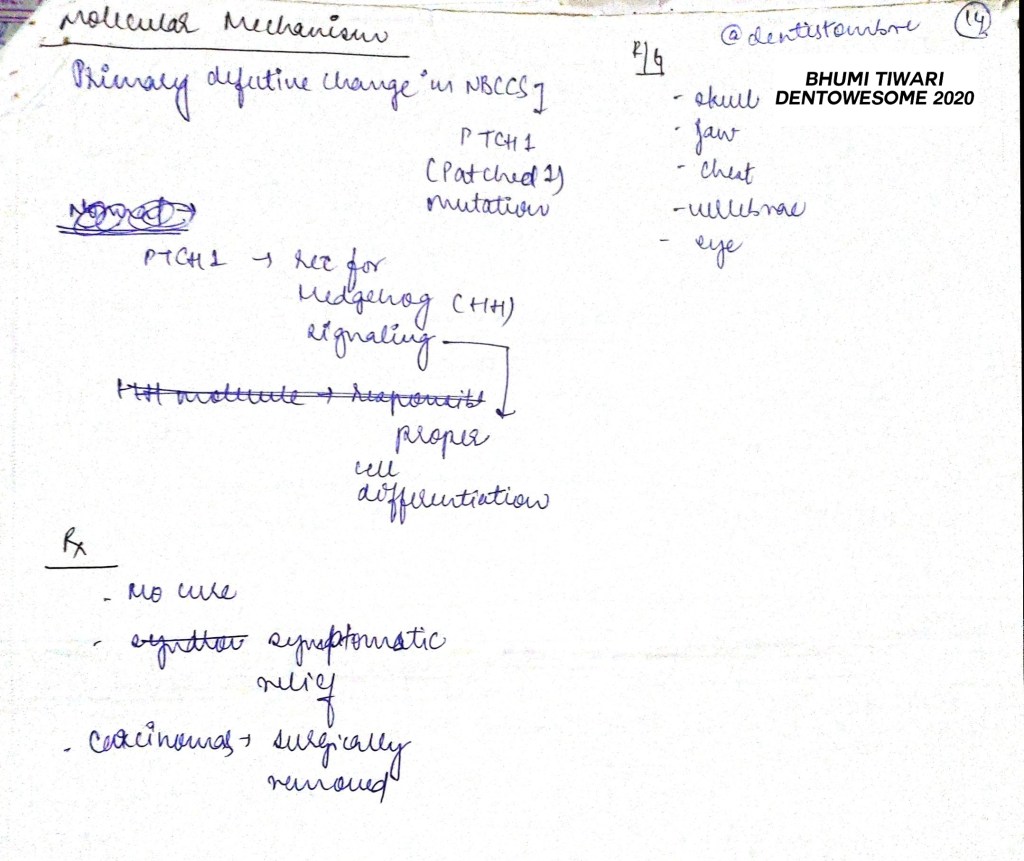 Molecular Mechanism
@dentistombre
14
BHUMI TIWARI
DENTOWESOME 2020
Primary defective change in NBCCS]
PTCH1
(Patched 1)
mutation
R/g
- skull
- jaw
- chest
- vertebrae
- eye
Normal →
PTCH1 → rec for
Hedgehog (HH)
signaling
HH molecule → responsible
proper
cell
differentiation
Rx
- No cure
- symptomatic
relief
- Carcinomas → surgically
removed